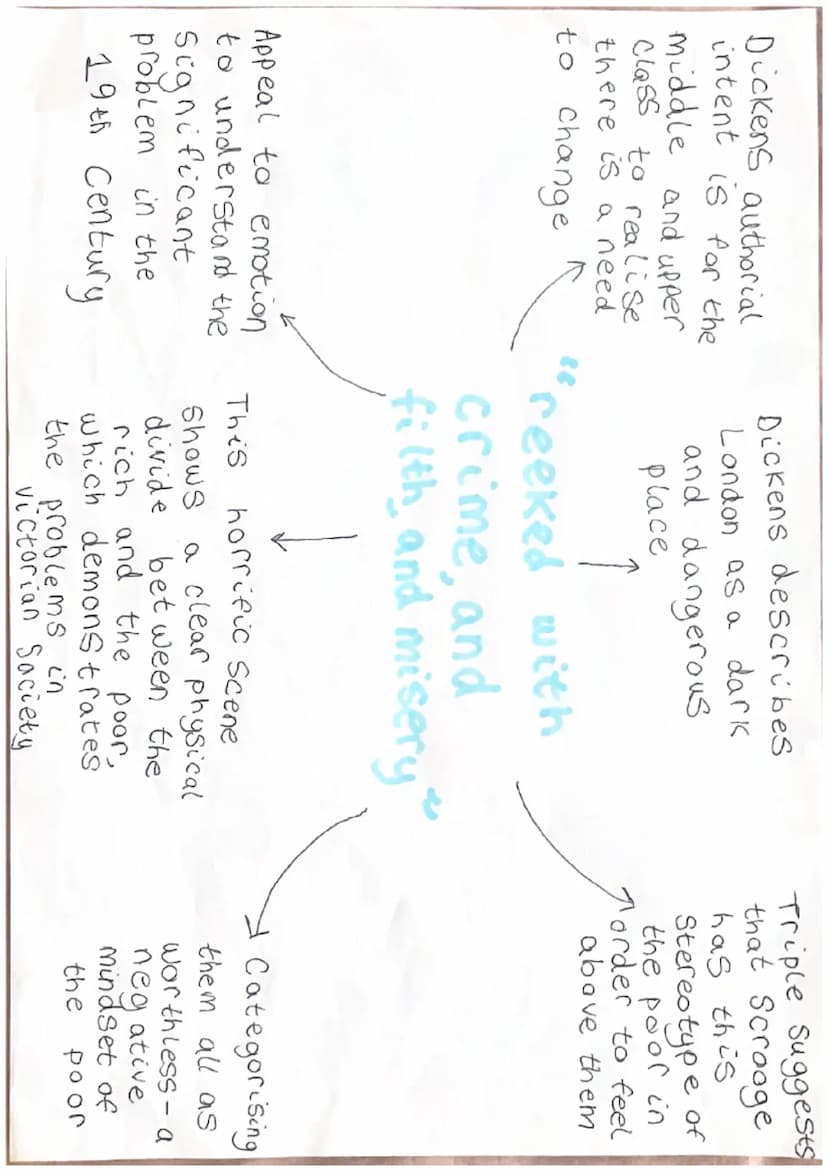 Dickens authorial
intent is for the
middle and upper
class to realise
there is a need
to change
Dickens describes
London as a dark
and dangerous
place
Triple suggests
that Scrooge
has this
stereotype of
the poor in
order to feel
above them
"reeked with
crime, and
filth, and misery"
Appeal to emotion
to understand the
significant
problem in the
19th Century
This horrific scene
shows a clear physical
divide between the
rich and the poor,
which demonstrates
the problems in
victorian society
Categorising
them all as
worthless - a
negative
mindset of
the poor